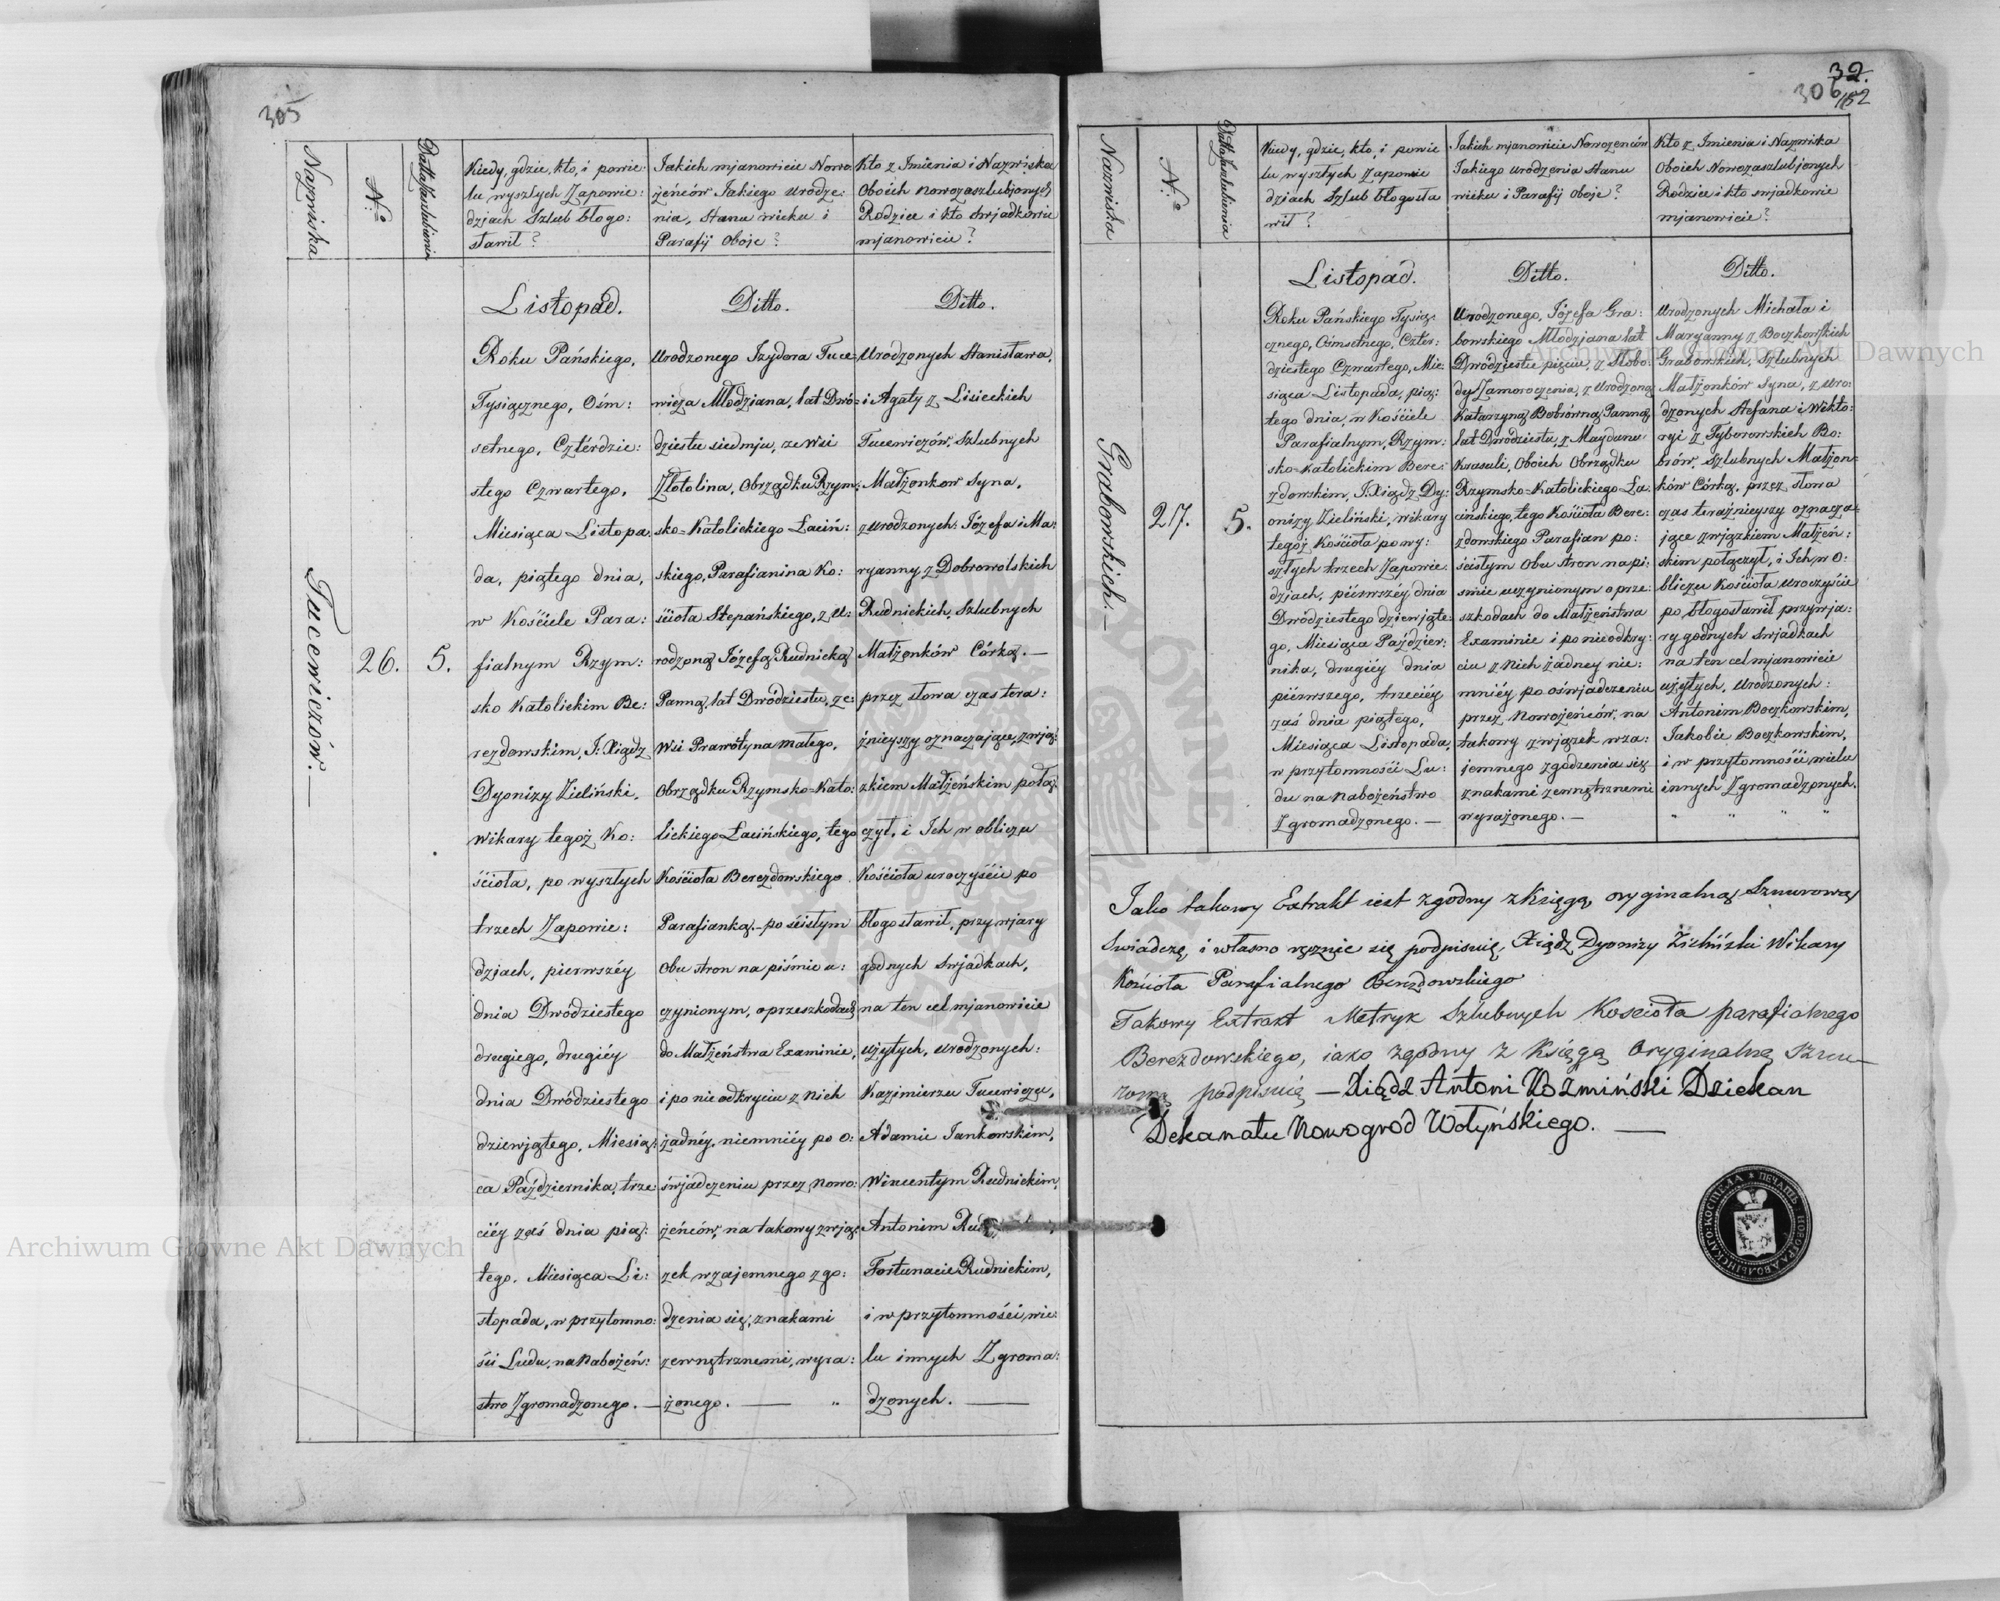 305
Nazwiska
N.º
Datta Zaslubienia
Kiedy, gdzie, kto, i powie:
lu wyszłych Zapowie:
dzjach Szlub błogo:
sławił?
Jakich mjanowicie Nowo
żeńców Jakiego urodze:
nia, Stanu wieku i
Parafij Oboje?
Kto z Jmienia i Nazwiska
Oboich nowozaszlubjonych
Rodzice i kto świadkowie
mjanowicie?
Tucewiczów.—
26.
5.
Listopad.
Roku Pańskiego,
Tysiącznego, Ośm:
setnego, Czterdzie:
stego Czwartego,
Miesiąca Listopa:
da, piątego dnia,
w Kościele Para:
fialnym Rzym:
sko Katolickim Be:
rezdowskim, J: Xiądz
Dyonizy Zieliński,
Wikary tegoż Ko:
ścioła, po wyszłych
trzech Zapowie:
dzjach, pierwszéy
dnia Dwódziestego
drugiego, drugiéy
dnia Dwódziestego
dziewjątego, Miesią:
ca Października, trze:
ciéy zaś dnia pią:
tego, Miesiąca Li:
stopada, w przytomno:
ści Ludu, na Nabożeń:
stwo Zgromadzonego.—
Ditto.
Urodzonego Jzydora Tuce:
wicza Młodziana, lat Dwó:
dziestu siedmju, ze Wsi
Złotolina, Obrządku Rzym:
sko=Katolickiego Łaciń:
skiego, Parafianina Ko:
ścioła Stepańskiego, z U:
rodzoną Józefą Rudnicką
Panną, lat Dwódziestu, ze:
Wsi Prawótyna małego,
Obrządku Rzymsko=Kato:
lickiego Łacińskiego, tego
Kościoła Berezdowskiego
Parafianką,– po ścisłym
Obu stron na piśmie u:
czynionym, o przeszkodach
do Małżeństwa Examinie,
i po nie odkryciu z Nich
żadnéy, niemniéy po o:
świadczeniu przez Nowo:
żeńców, na takowy zwją:
zek wzajemnego zgo:
dzenia się, znakami
zewnętrznemi, wyra:
żonego. — „
Ditto.
Urodzonych Stanisława,
i Agaty z Lisieckich
Tucewiczów, Szlubnych
Małżonkow Syna,
z Urodzonych: Józefa i Ma:
ryanny z Dobrowolskich
Rudnickich, Szlubnych
Małżonków Córką.—
przez słowa czas tera:
źnieyszy oznaczające, zwją:
zkiem Małżeńskim połą:
czył, i Jch w obliczu
Kościoła uroczyście po
błogosławił, przy wjary
godnych Swjadkach,
na ten cel mjanowicie
użytych, Urodzonych:
Kazimierzu Tucewiczu,
Adamie Jankowskim,
Wincentym Rudnickim,
Antonim
Fortunacie Rudnickim,
i w przytomności, wie:
lu innych Zgroma:
dzonych. —
32.
306
152
Nazwiska
N.º
Datta Zaslubienia
Kiedy, gdzie, kto, i powie
lu wyszłych Zapowie
dziach Szlub błogosła
wił?
Jakich mjanowicie Nowożeńców
Jakiego urodzenia Stanu
wieku i Parafij Oboje?
Kto z Jmienia i Nazwiska
Oboich Nowozaszlubjonych
Rodzice i kto swjadkowie
mjanowicie?
Grabowskich.—
27.
5.
Listopad.
Roku Pańskiego Tysią:
cznego, Ośmsetnego, Czter:
dziestego Czwartego, Mie:
siąca Listopada, pią:
tego dnia, w Kościele
Parafialnym, Rzym:
sko=Katolickim Bere:
zdowskim, J: Xiądz Dy:
onizy Zieliński, Wikary
tegoż Kościoła po wy:
szłych trzech Zapowie:
dzjach, piérwszéy dnia
Dwódziestego dziewjąte:
go, Miesiąca Paździer:
nika, drugiéy dnia
piérwszego, trzeciéy
zaś dnia piątego,
Miesiąca Listopada,
w przytomności Lu:
du na Nabożeństwo
Zgromadzonego.—
Ditto.
Urodzonego, Józefa Gra:
bowskiego Młodzjana lat
Dwódziestu pięciu, z Słobo:
dy Zamoroczenia, z Urodzoną
Katarzyną Bobrówną Panną,
lat Dwódziestu, z Maydanu:
Krasuli, Oboich Obrządku
Rzymsko=Katolickiego Ła:
cińskiego, tego Kościoła Bere:
zdowskiego Parafian po:
ścisłym Obu Stron na pi:
śmie uczynionym o prze:
szkodach do Małżeństwa
Examinie i po nieodkry:
ciu z Nich żadney nie:
mniéy po oświadczeniu
przez Nowożeńców, na
takowy związek wza:
jemnego zgodzenia się
znakami zewnętrznemi
wyrażonego.—
Ditto.
Urodzonych Michała i
Maryanny z Boczkowskich
Grabowskich, Szlubnych
Małżonków Syna, z Uro:
dzonych Stefana i Wikto:
ryi z Tyborowskich Bo:
brów, Szlubnych Małżon=
ków Córką, przez słowa
czas teraźnieyszy oznacza=
jące związkiem Małżeń:
skim połączył, i Jch w O:
bliczu Kościoła uroczyście
po błogosławił przy wja:
ry godnych Swjadkach
na ten cel mjanowicie
użytych, Urodzonych:
Antonim Boczkowskim,
Jakobie Boczkowskim,
i w przytomności wielu
innych Zgromadzonych.
„ „ „ „
Jako takowy Extrakt iest zgodny z Księgą oryginalną Sznurową
Świadczę, i własno ręcznie się podpisuię, Xiądz Dyonizy Zieliński Wikary
Kościoła Parafialnego Berezdowskiego
Takowy Extrakt Metryk Szlubnych Kościoła parafialnego
Berezdowskiego, iako zgodny z Księgą Oryginalną Sznu—
rową podpisuię — Xiądz Antoni Kozmiński Dziekan
Dekanatu Nowogrod Wołyńskiego. —
ПЕЧАТЬ НОВОГРАДВОЛЫНСКАГО КОСТЕЛА
Archiwum Główne Akt Dawnych
Archiwum Główne Akt Dawnych